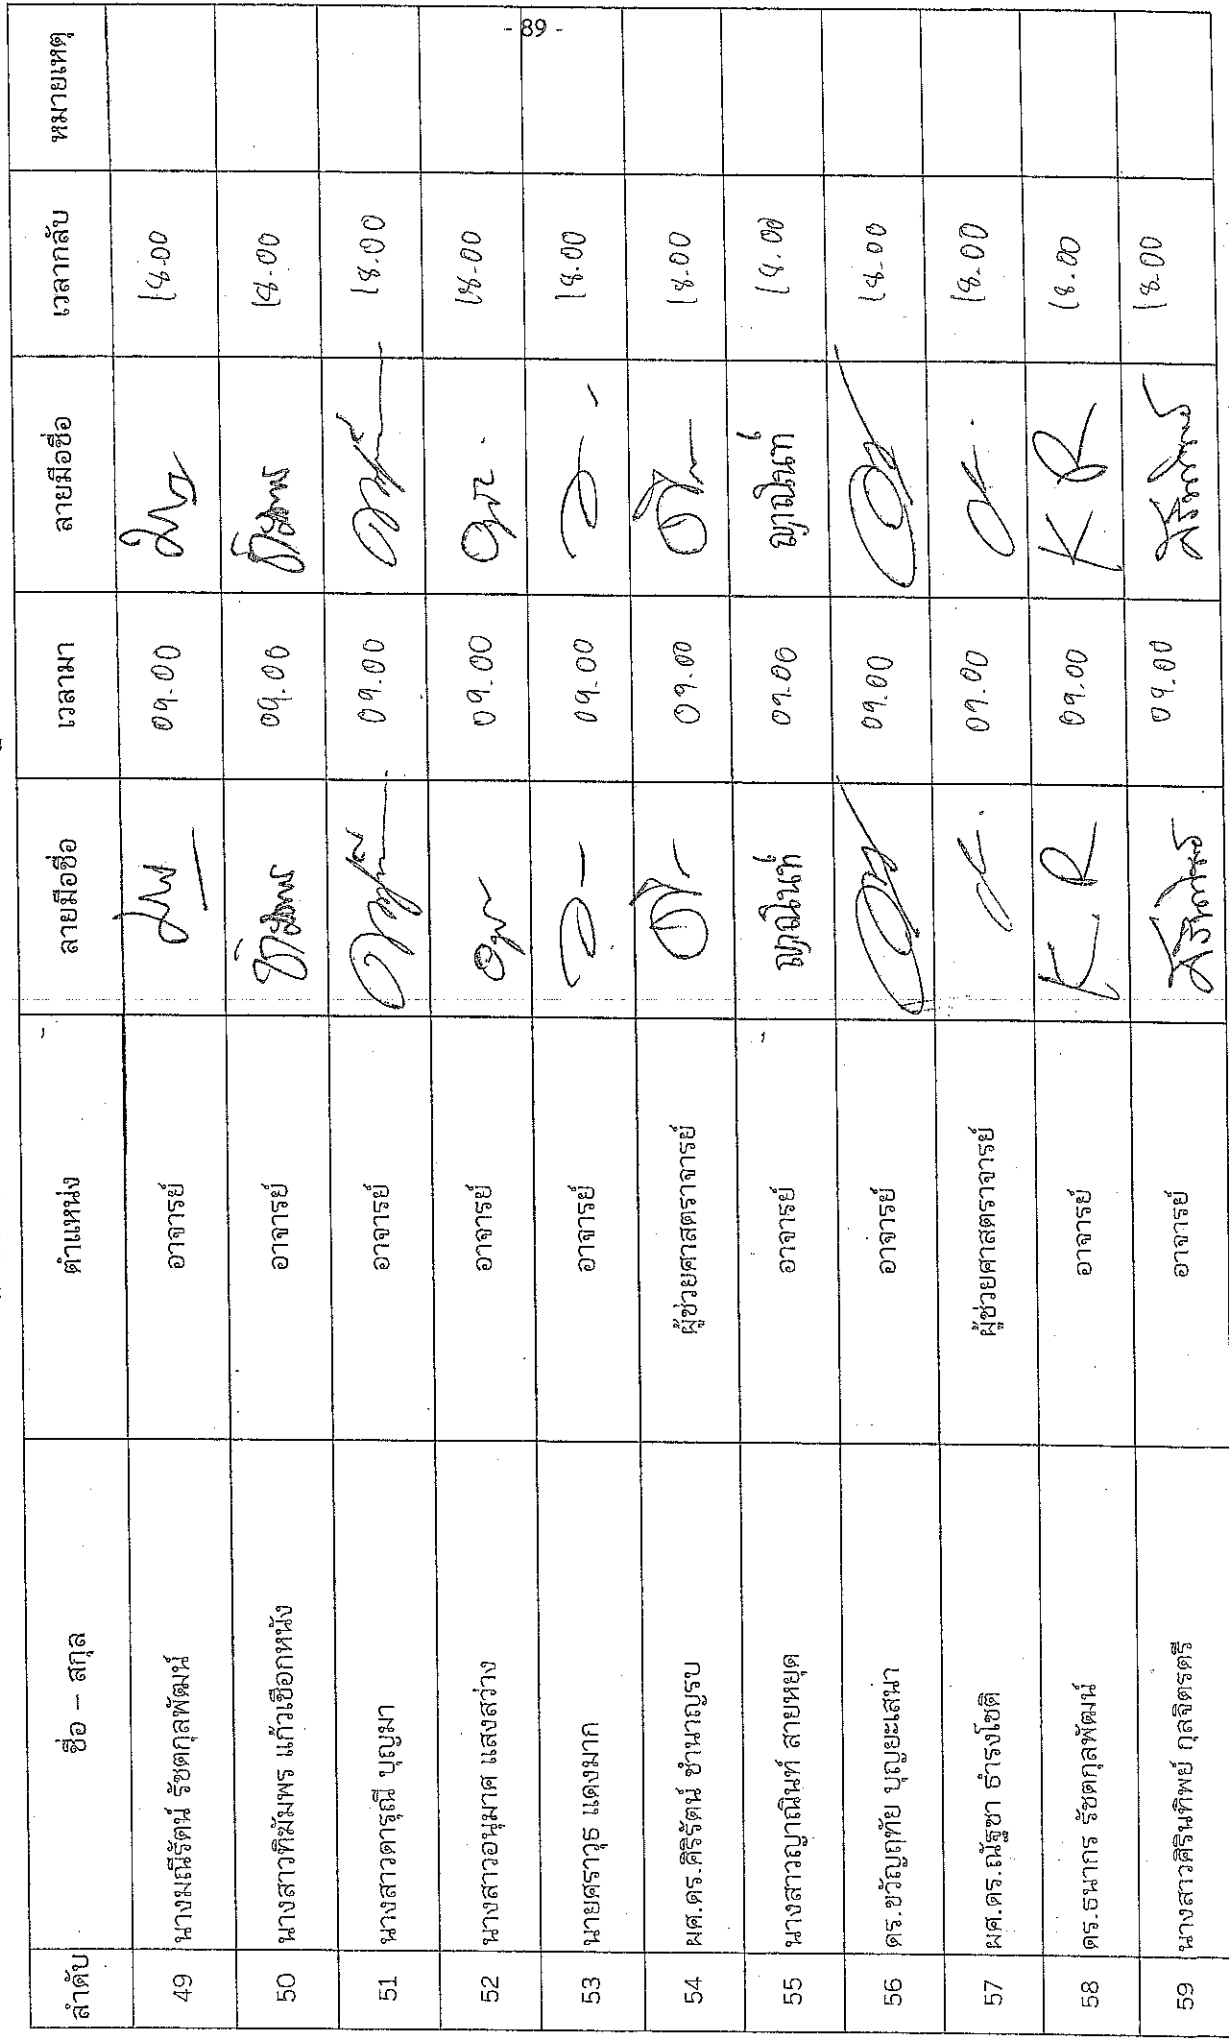 - 89 -
ลำดับ ชื่อ – สกุล ตำแหน่ง ลายมือชื่อ เวลามา ลายมือชื่อ เวลากลับ หมายเหตุ
49 นางมณีรัตน์ รัชตกุลพัฒน์ อาจารย์ 09.00 18.00
50 นางสาวทิฆัมพร แก้วเชือกหนัง อาจารย์ ทิฆัมพร 09.00 ทิฆัมพร 18.00
51 นางสาวดารุณี บุญมา อาจารย์ 09.00 18.00
52 นางสาวอนุมาศ แสงสว่าง อาจารย์ 09.00 18.00
53 นายศราวุธ แดงมาก อาจารย์ 09.00 18.00
54 ผศ.ดร.ศิริรัตน์ ชำนาญรบ ผู้ช่วยศาสตราจารย์ 09.00 18.00
55 นางสาวญาณินท์ สายหยุด อาจารย์ ญาณินท์ 09.00 ญาณินท์ 18.00
56 ดร.ขวัญฤทัย บุญยะเสนา อาจารย์ 09.00 18.00
57 ผศ.ดร.ณัฐชา ธำรงโชติ ผู้ช่วยศาสตราจารย์ 09.00 18.00
58 ดร.ธนากร รัชตกุลพัฒน์ อาจารย์ K R 09.00 K R 18.00
59 นางสาวศิรินทิพย์ กุลจิตรตรี อาจารย์ ศิรินทิพย์ 09.00 ศิรินทิพย์ 18.00